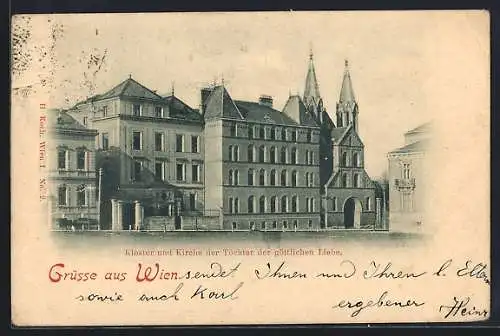 H Koch, Wien I. No. 9.
Kloster und Kirche der Töchter der göttlichen Liebe.
Grüsse aus Wien. sendet Ihnen und Ihren l. Eltern
sowie auch Karl
ergebener Heinr